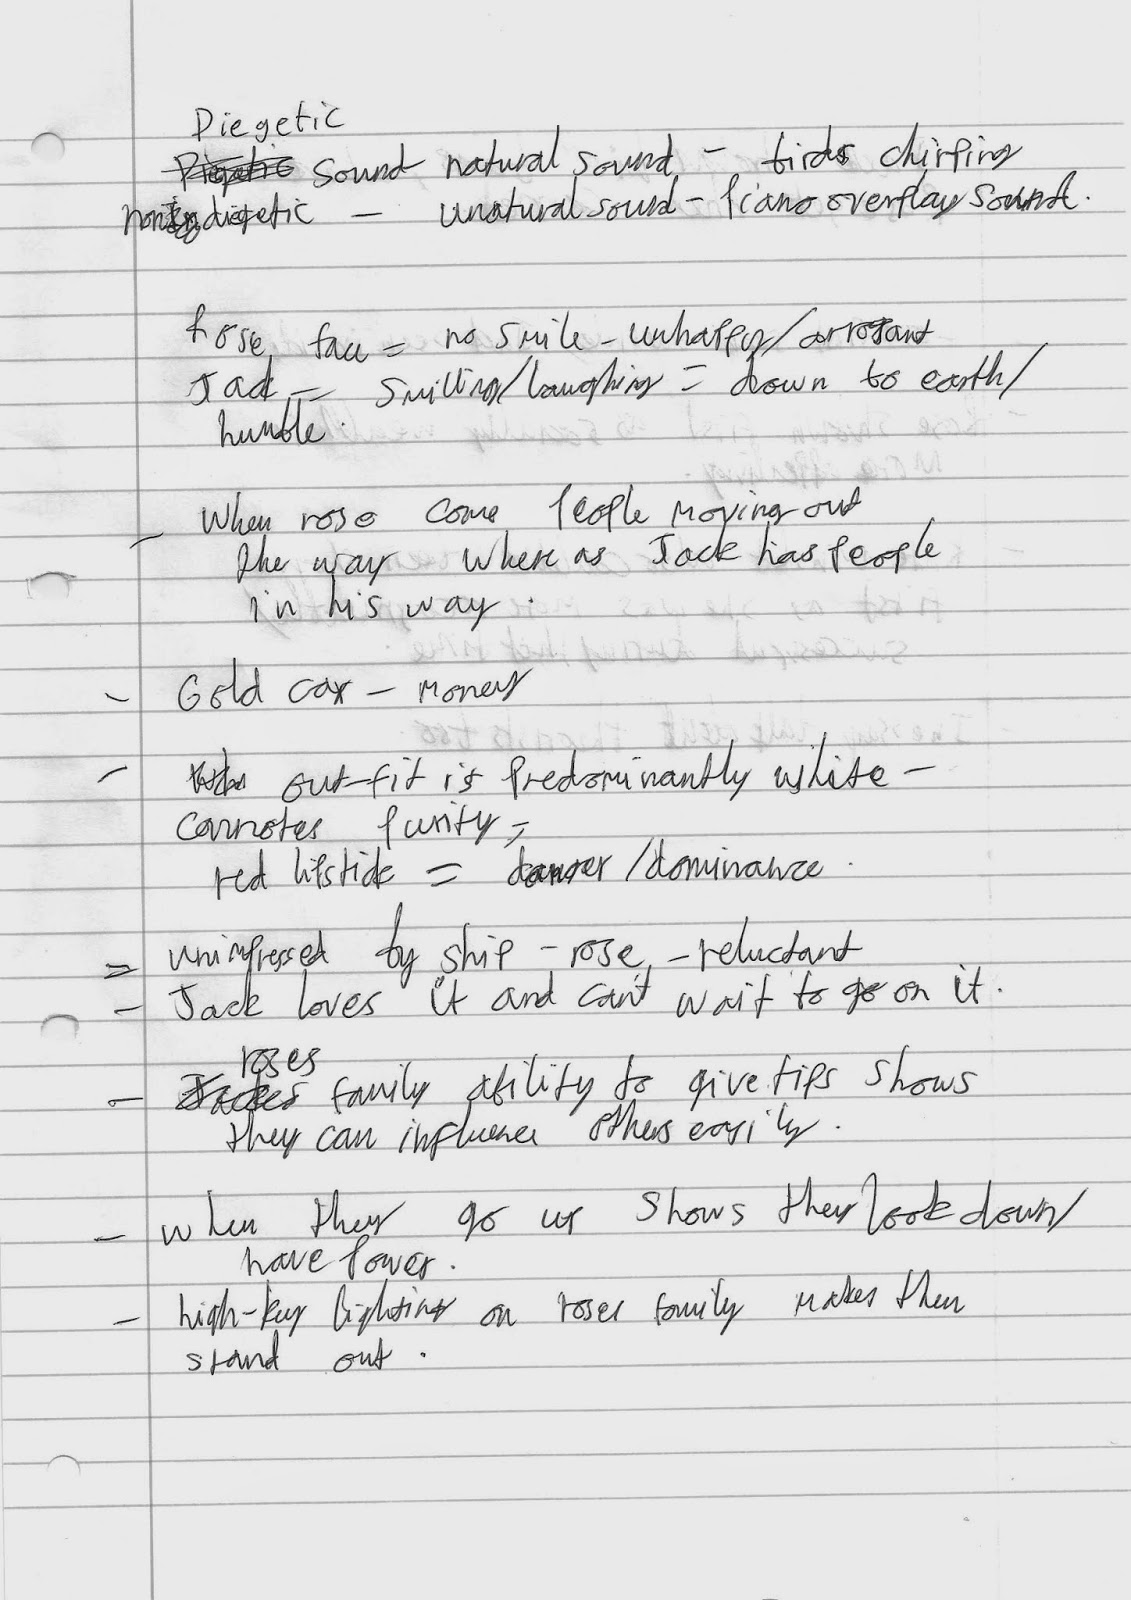 Diegetic
sound natural sound - birds chirping
non diegetic - unatural sound - piano overplay sound.
Rose face = no smile - unhappy/arrogant
Jack - smilling/laughing = down to earth/
humble.
- When rose come people moving out
the way where as Jack has people
in his way.
- Gold car - money
- out-fit is predominantly white -
connotes purity,
red lipstick = danger/dominance.
= unimpressed by ship - rose - reluctant
- Jack loves it and can't wait to go on it.
roses
- family ability to give tips shows
they can influence others easily.
- when they go up shows they look down/
have power.
- high-key lighting on roses family makes them
stand out.